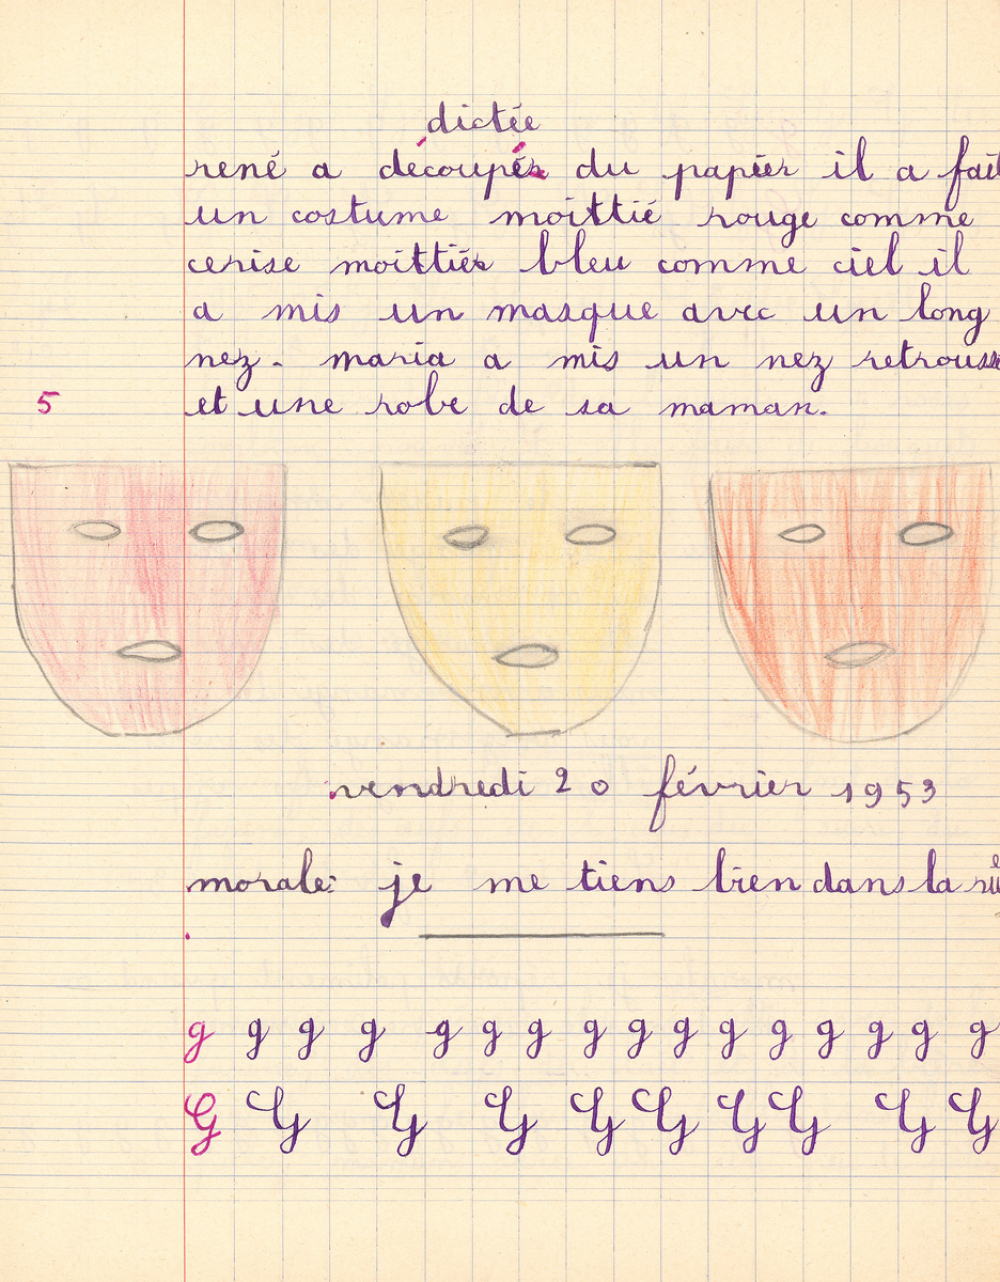 dictée
rené a découpér du papiér il a fait
un costume moittié rouge comme
cerise moittiér bleu comme ciel il
a mis un masque avec un long
nez. maria a mis un nez retroussé
5 et une robe de sa maman.
vendredi 20 février 1953
morale: je me tiens bien dans la
g g g g g g g g g g g g g g g g
G G G G G G G G G G